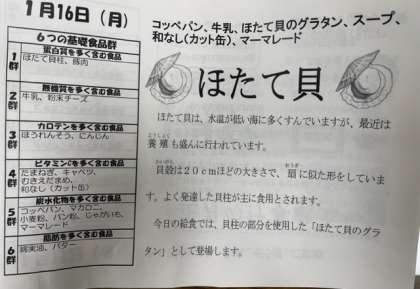 1月16日（月）
6つの基礎食品群
1群
蛋白質を多く含む食品
ほたて貝柱、豚肉
2群
無機質を多く含む食品
牛乳、粉末チーズ
3群
カロテンを多く含む食品
ほうれんそう、にんじん
4群
ビタミンCを多く含む食品
たまねぎ、キャベツ、
むきえだまめ、
和なし（カット缶）
5群
炭水化物を多く含む食品
コッペパン、マカロニ、
小麦粉、パン粉、じゃがいも、
マーマレード
6群
脂肪を多く含む食品
綿実油、バター
コッペパン、牛乳、ほたて貝のグラタン、スープ、
和なし（カット缶）、マーマレード
ほたて貝
ほたて貝は、水温が低い海に多くすんでいますが、最近は
養殖も盛んに行われています。
貝殻は20cmほどの大きさで、扇に似た形をしていま
す。よく発達した貝柱が主に食用とされます。
今日の給食では、貝柱の部分を使用した「ほたて貝のグラ
タン」として登場します。